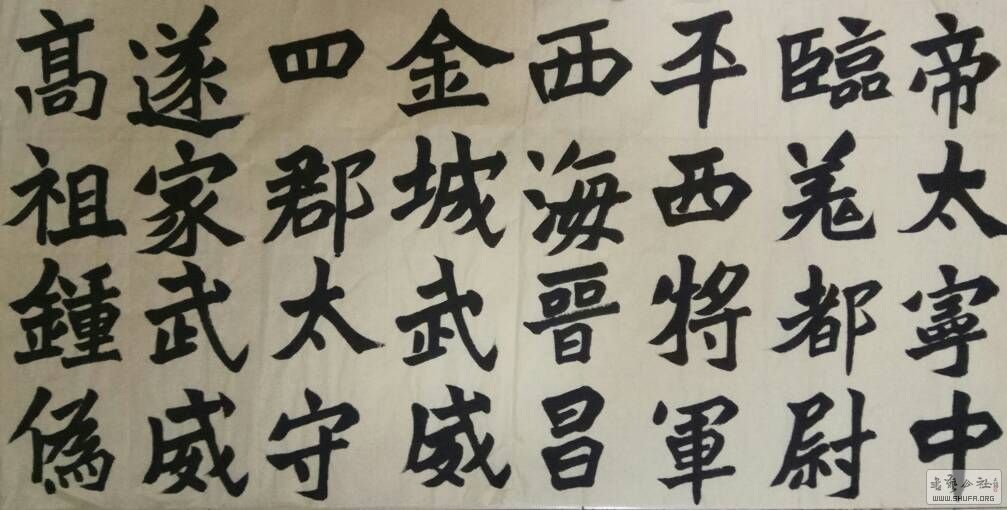 帝太寧中
臨羌都尉
平西將軍
西海晉昌
金城武威
四郡太守
遂家武威
高祖鍾偽
WWW.SHUFA.ORG